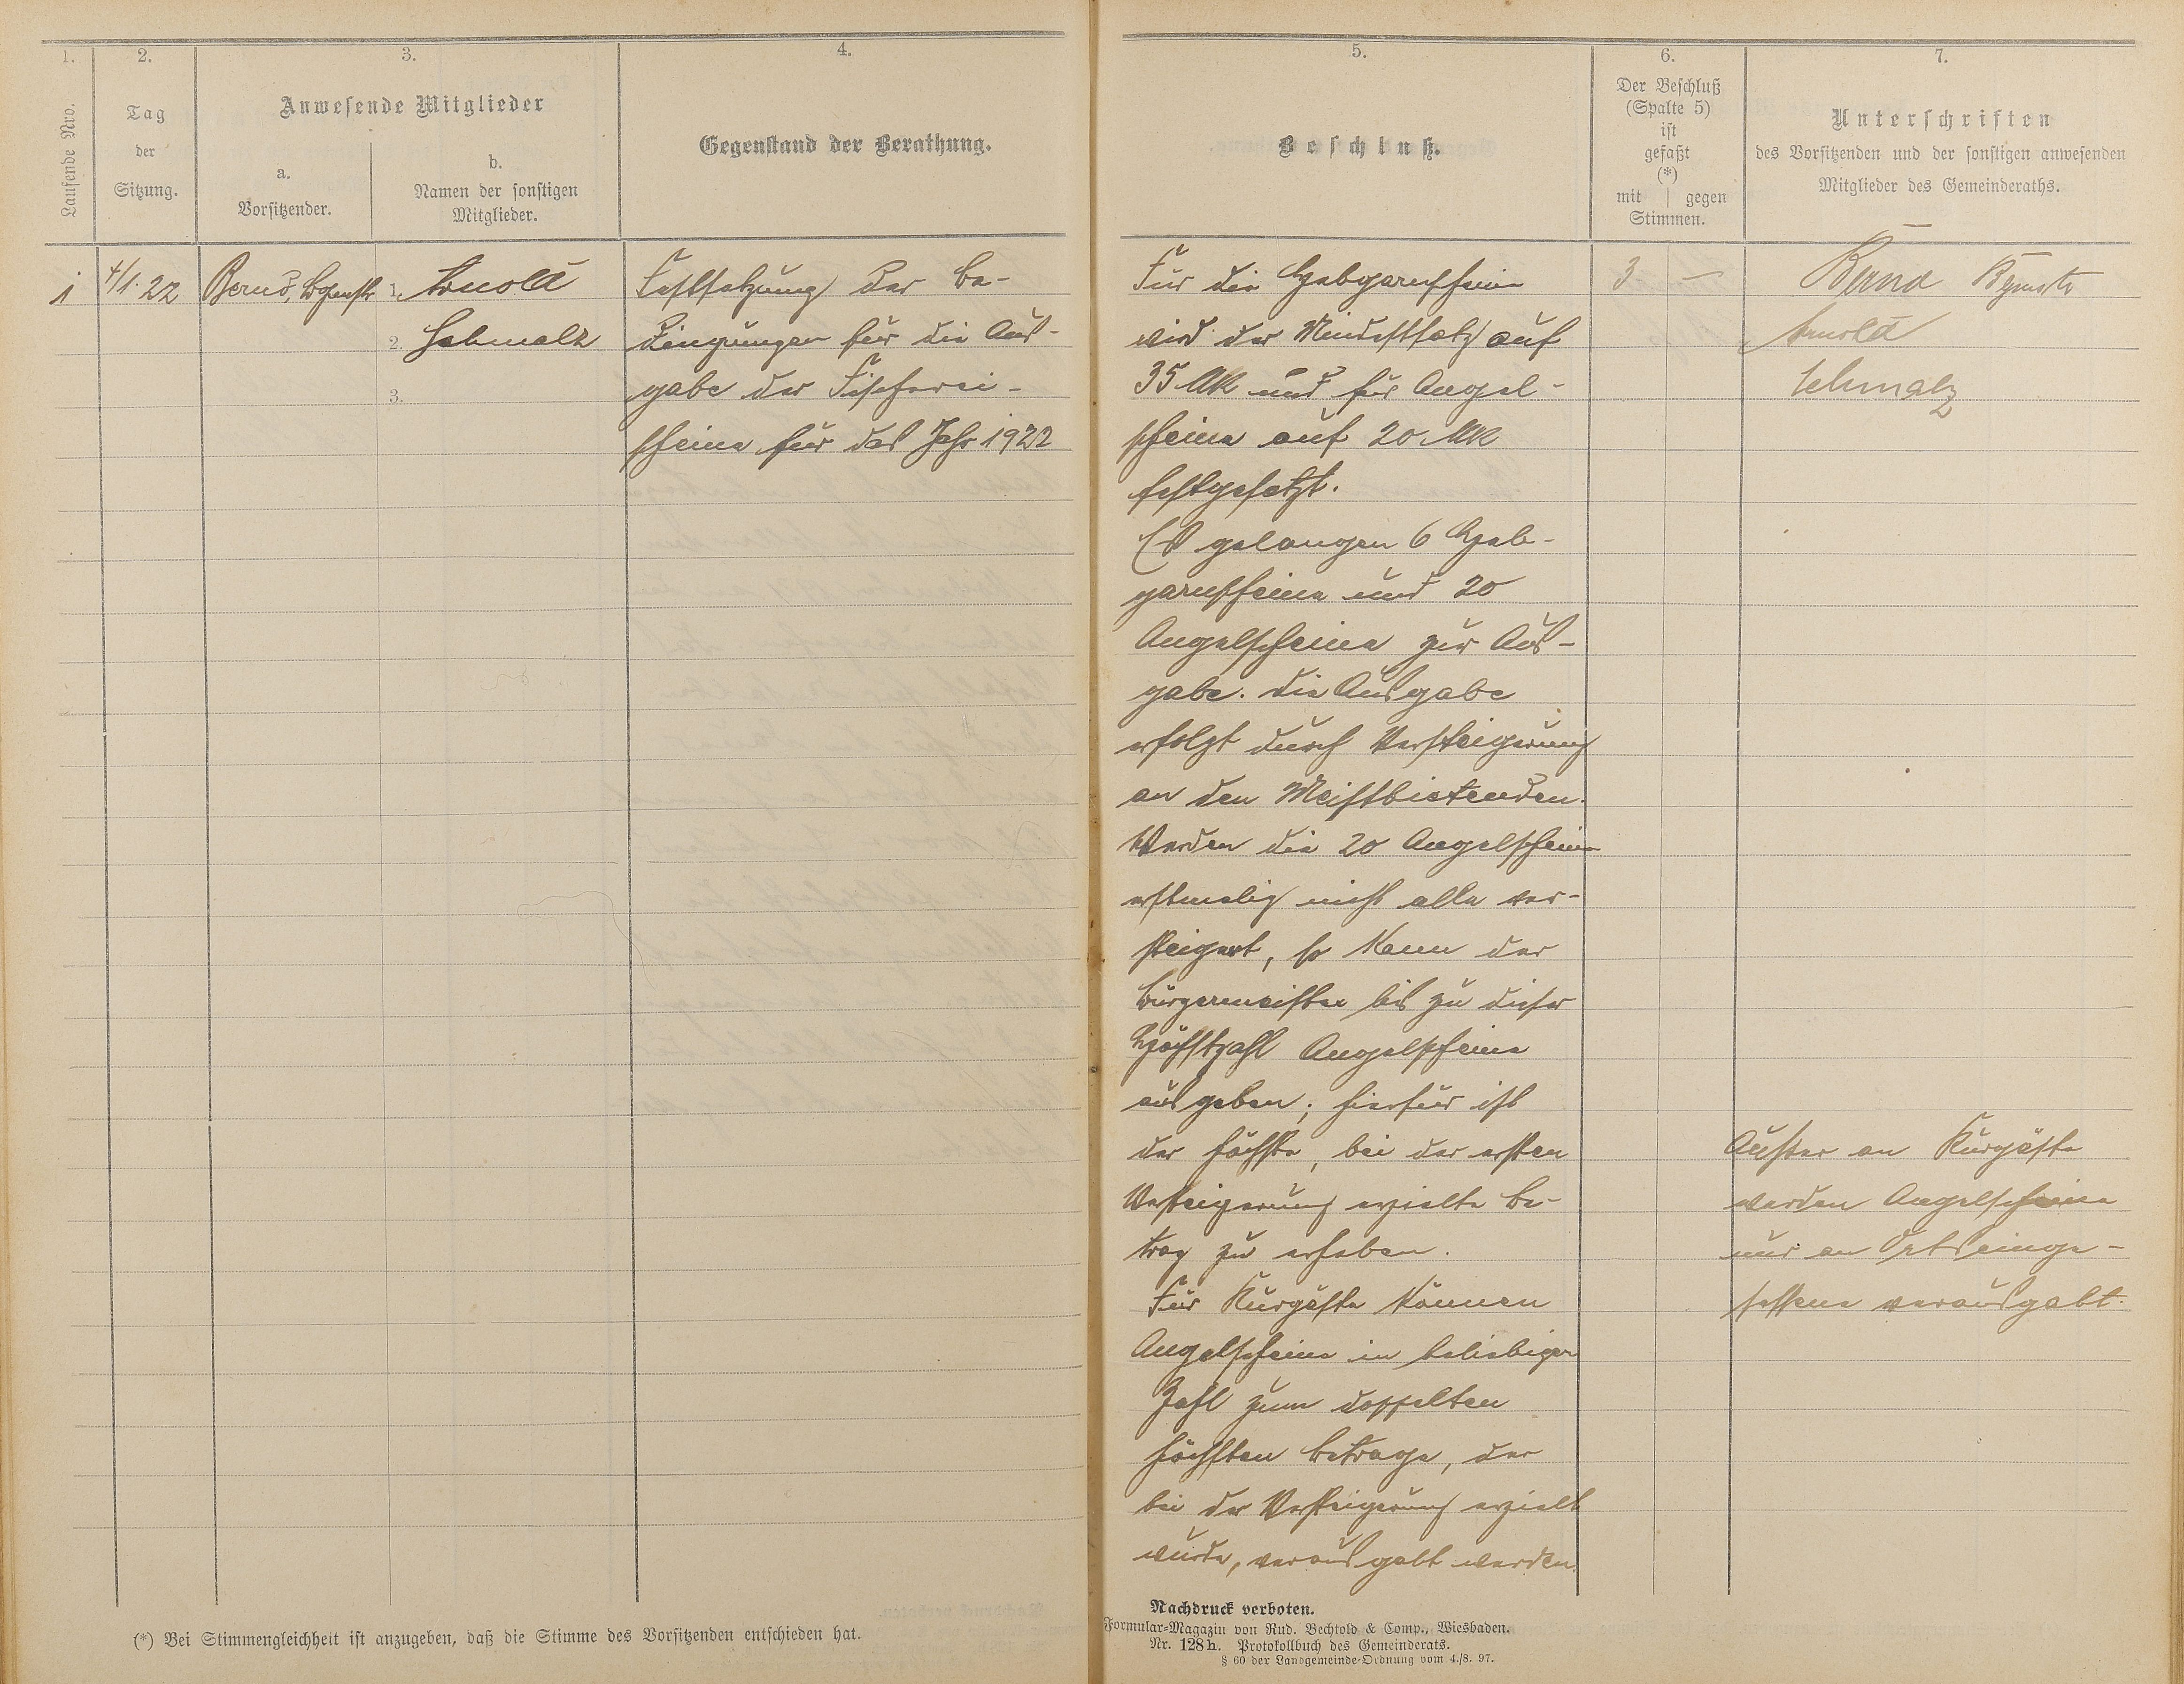 1.
Laufende Nro.
2.
Tag
der
Sitzung.
3.
Anwesende Mitglieder
a.
Vorsitzender.
b.
Namen der sonstigen
Mitglieder.
4.
Gegenstand der Berathung.
1
4/1.22
Bernd, Bgrmstr
1. Arnold
2. Schmalz
3.
Festsetzung der Be-
dingungen für die Aus-
gabe der Fischerei-
scheine für das Jahr 1922
(*) Bei Stimmengleichheit ist anzugeben, daß die Stimme des Vorsitzenden entschieden hat.
5.
Beschluß.
6.
Der Beschluß
(Spalte 5)
ist
gefaßt
(*)
mit | gegen
Stimmen.
7.
Unterschriften
des Vorsitzenden und der sonstigen anwesenden
Mitglieder des Gemeinderaths.
Für die Hebgarnscheine
wird der Mindestsatz auf
35 Mk und für Angel-
scheine auf 20 Mk
festgesetzt.
Es gelangen 6 Heb-
garnscheine und 20
Angelscheine zur Aus-
gabe. Die Ausgabe
erfolgt durch Versteigerung
an den Meistbietenden.
Werden die 20 Angelscheine
erstmalig nicht alle ver-
steigert, so kann der
Bürgermeister bis zu dieser
Höchstzahl Angelscheine
ausgeben; hierfür ist
der höchste, bei der ersten
Versteigerung erzielte Be-
trag zu erheben.
Für Kurgäste können
Angelscheine in beliebiger
Zahl zum doppelten
höchsten Betrage, der
bei der Versteigerung erzielt
wurde, verausgabt werden.
3 —
Bernd Bgrmstr
Arnold
Schmalz
Außer an Kurgäste
werden Angelscheine
nur an Ortseinge-
sessene verausgabt.
Nachdruck verboten.
Formular-Magazin von Rud. Bechtold & Comp., Wiesbaden.
Nr. 128h. Protokollbuch des Gemeinderats.
§ 60 der Landgemeinde-Ordnung vom 4./8. 97.